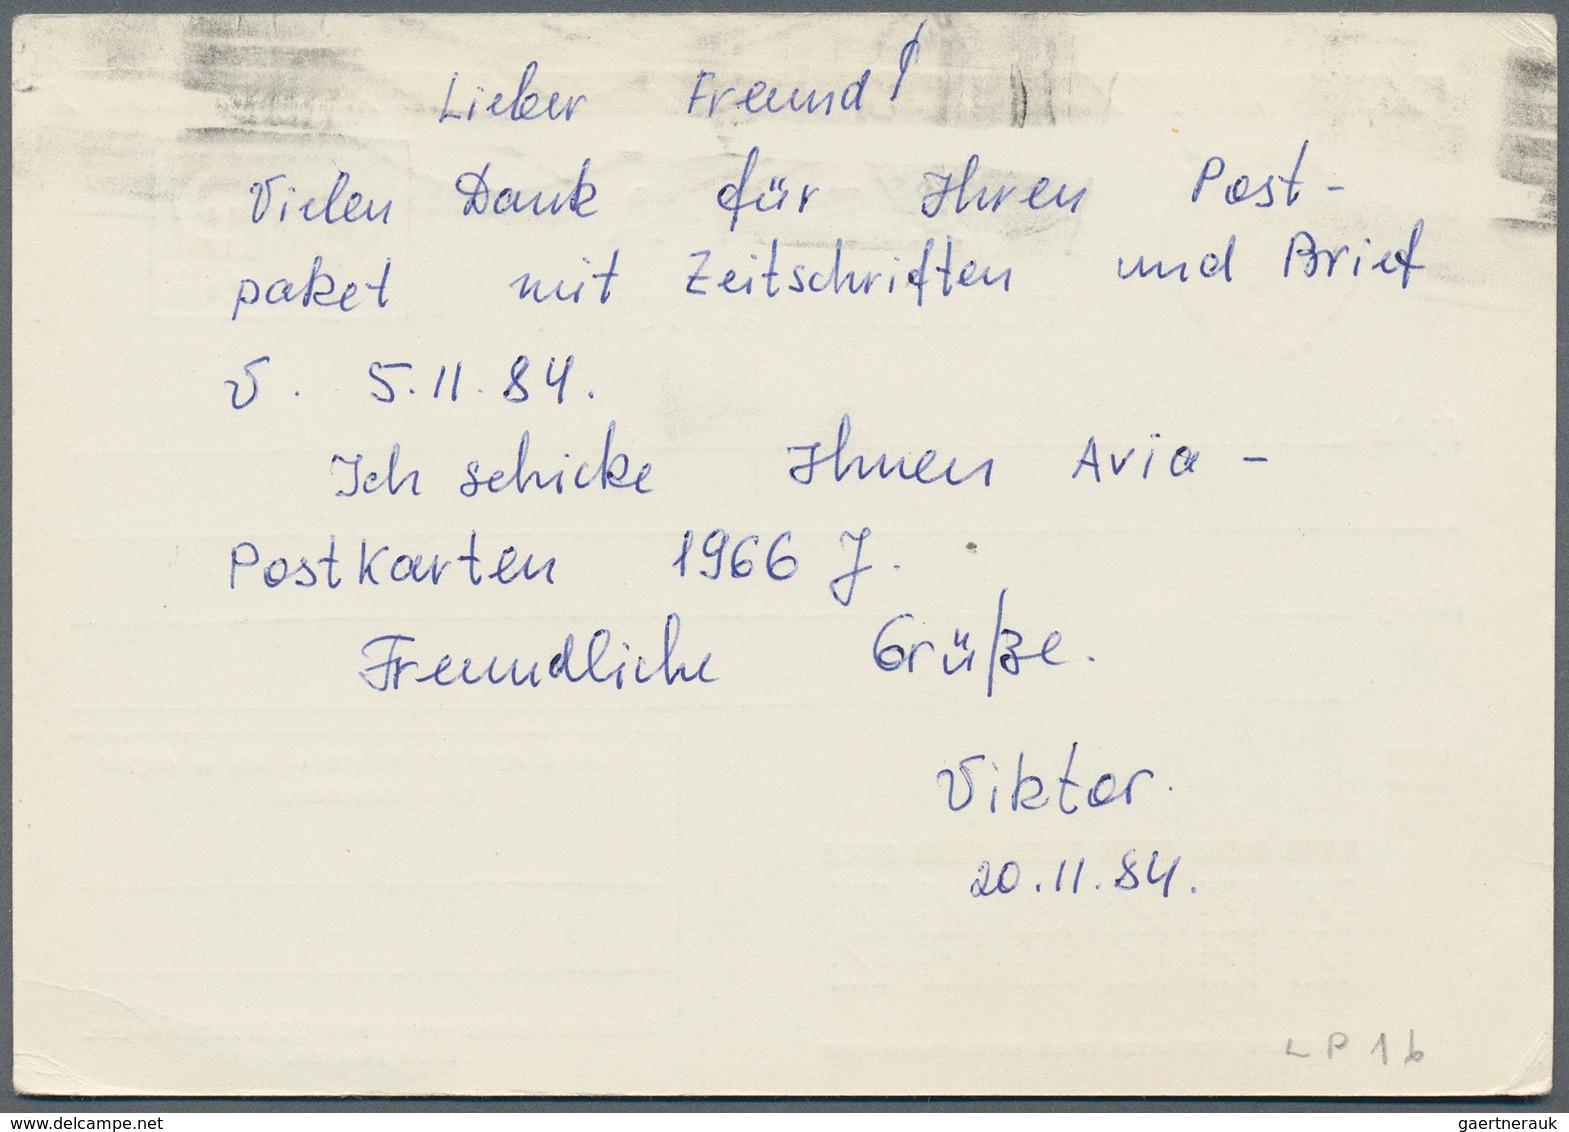 Lieber Freund!
Vielen Dank für Ihren Post-
paket mit Zeitschriften und Brief
v. 5.11.84.
Ich schicke Ihnen Avia-
Postkarten 1966 J.
Freundliche Grüße.
Viktor.
20.11.84.
LP 1b
www.delcampe.net
gaertnerauk